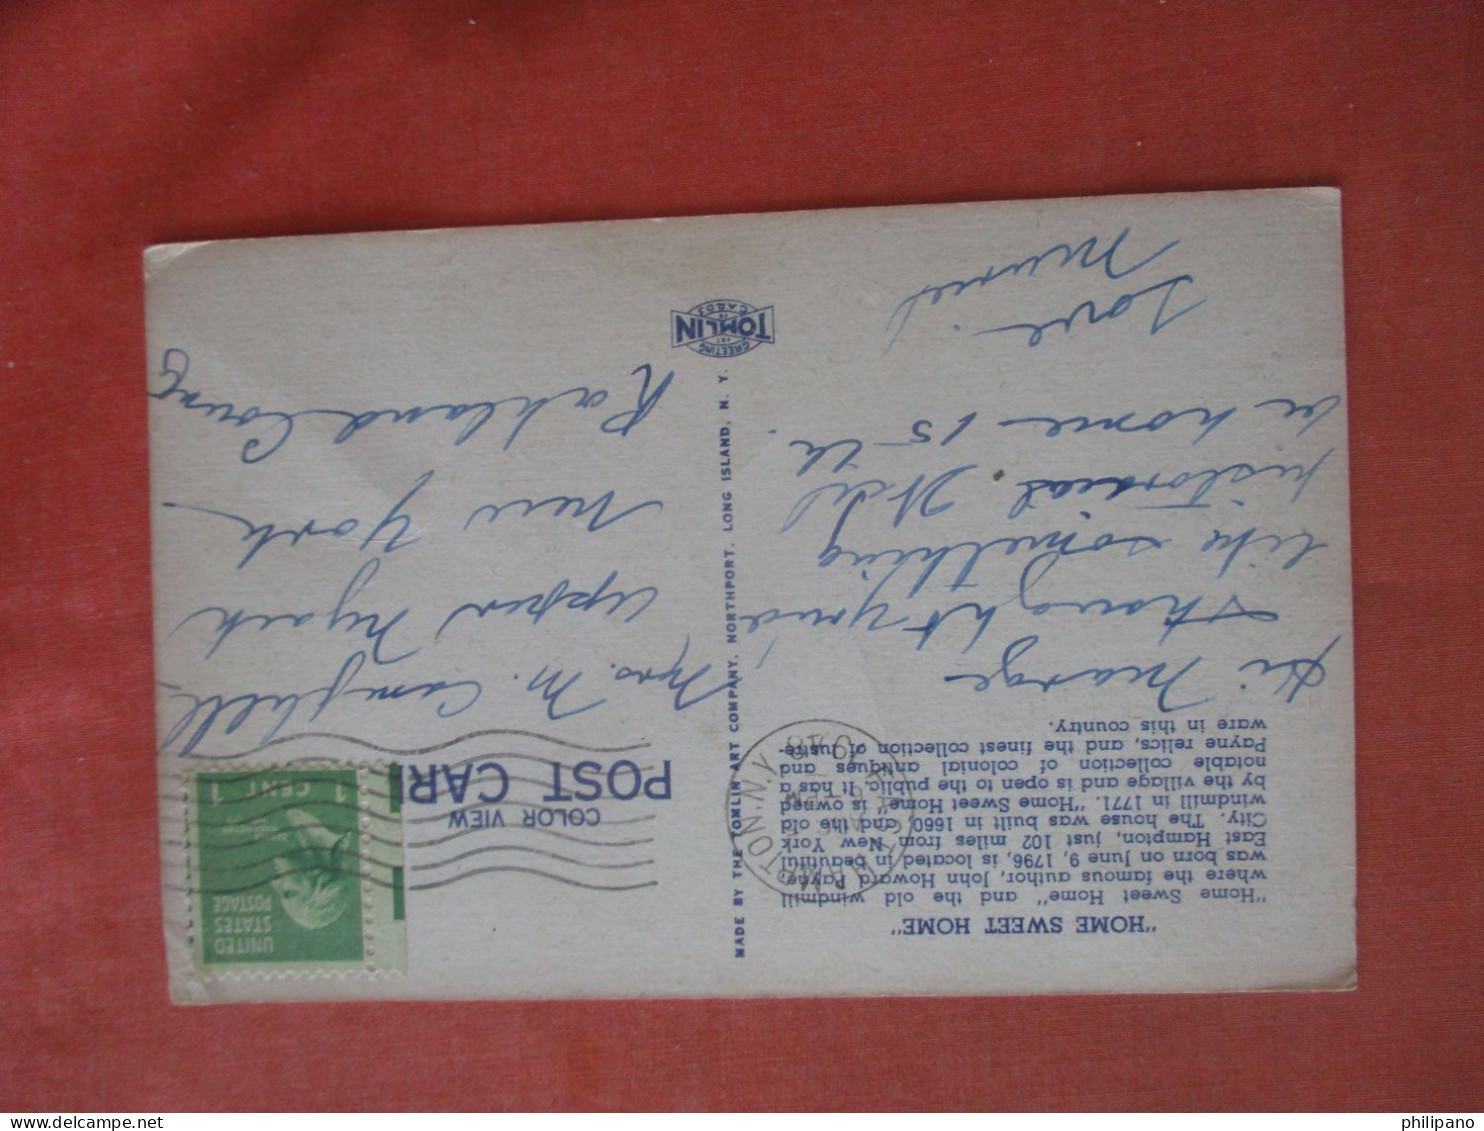 "HOME SWEET HOME"
"Home Sweet Home" and the old windmill
where the famous author, John Howard Payne,
was born on June 9, 1796, is located in beautiful
East Hampton, just 102 miles from New York
City. The house was built in 1660 and the old
windmill in 1771. "Home Sweet Home" is owned
by the village and is open to the public. It has a
notable collection of colonial antiques and
Payne relics, and the finest collection of lustre-
ware in this country.
Hi Marge
thought you'd
like something
historical. Will
be home 15th.
Love
Muriel
MADE BY THE TOMLIN ART COMPANY, NORTHPORT, LONG ISLAND, N. Y.
GREETING
ART
TOMLIN
CARDS
COLOR VIEW
POST CARD
EAST HAMPTON, N.Y.
UNITED
STATES
POSTAGE
1 CENT 1
Mrs. M. Campbell
Upper Nyack
New York
Rockland County
philipano